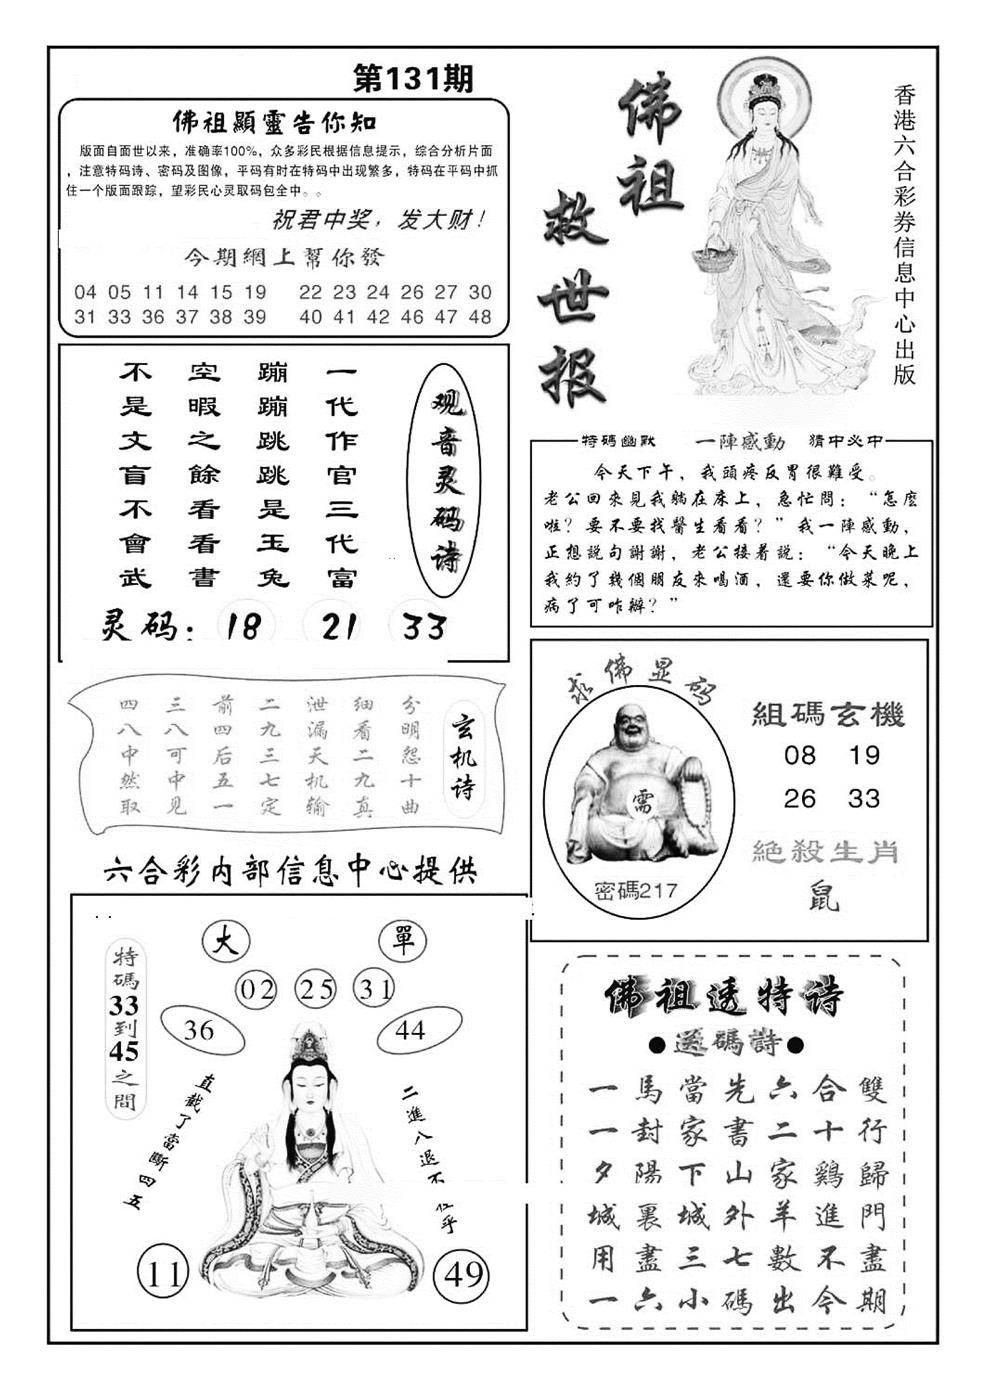 第131期
佛祖顯靈告你知
版面自面世以来，准确率100%，众多彩民根据信息提示，综合分析片面
，注意特码诗、密码及图像，平码有时在特码中出现繁多，特码在平码中抓
住一个版面跟踪，望彩民心灵取码包全中。。
祝君中奖，发大财！
今期網上幫你發
04 05 11 14 15 19 22 23 24 26 27 30
31 33 36 37 38 39 40 41 42 46 47 48
佛祖
救世报
香港六合彩券信息中心出版
观音灵码诗
一代作官三代富
蹦蹦跳跳是玉兔
空暇之餘看看書
不是文盲不會武
灵码：18 21 33
特碼幽默 一陣感動 猜中必中
今天下午，我頭疼反胃很難受。
老公回來見我躺在床上，急忙問：“怎麽
啦？要不要找醫生看看？”我一陣感動，
正想説句謝謝，老公接着説：“今天晚上
我約了幾個朋友來喝酒，還要你做菜呢，
病了可咋辦？”
玄机诗
分明怨十曲
细看二九真
泄漏天机输
二九三七定
前四后五一
三八可中见
四八中然取
求佛显码
需
密碼217
組碼玄機
08 19
26 33
絕殺生肖
鼠
六合彩内部信息中心提供
大 單
02 25 31
36 44
特碼33到45之間
直截了當斷四五
二進八退不在乎
11 49
佛祖透特诗
●送碼詩●
一馬當先六合雙
一封家書二十行
夕陽下山家鷄歸
城裏城外羊進門
用盡三七數不盡
一六小碼出今期